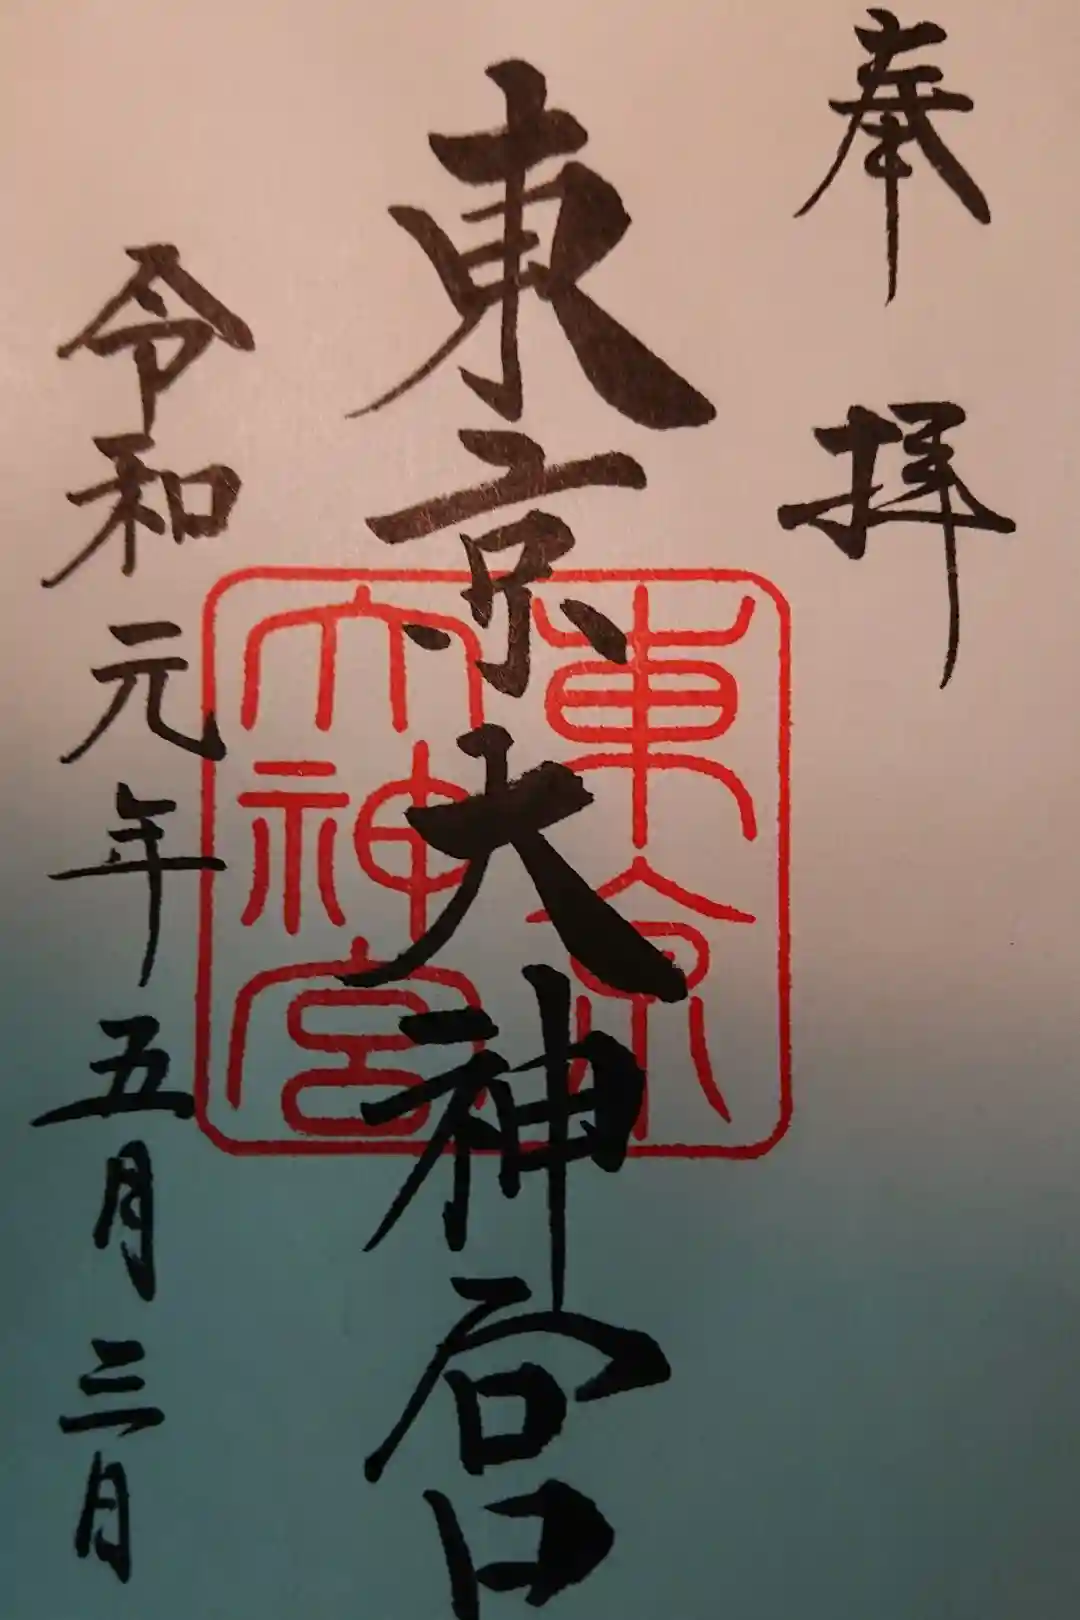 奉拝
東京大神宮
東京
大神宮
令和元年五月三日